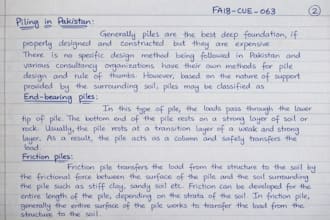 FA18-CVE-063
2
Piling in Pakistan:
Generally piles are the best deep foundation, if
properly designed and constructed but they are expensive
There is no specific design method being followed in Pakistan and
various consultancy organizations have their own methods for pile
design and rule of thumbs. However, based on the nature of support
provided by the surrounding soil, piles may be classified as
End-bearing piles:
In this type of pile, the loads pass through the lower
tip of pile. The bottom end of the pile rests on a strong layer of soil or
rock. Usually, the pile rests at a transition layer of a weak and strong
layer. As a result, the pile acts as a column and safely transfers the
load
Friction piles:
Friction pile transfers the load from the structure to the soil by
the frictional force between the surface of the pile and the soil surrounding
the pile such as stiff clay, sandy soil etc. Friction can be developed for the
entire length of the pile, depending on the strata of the soil. In friction pile,
generally the entire surface of the pile works to transfer the load from the
structure to the soil.